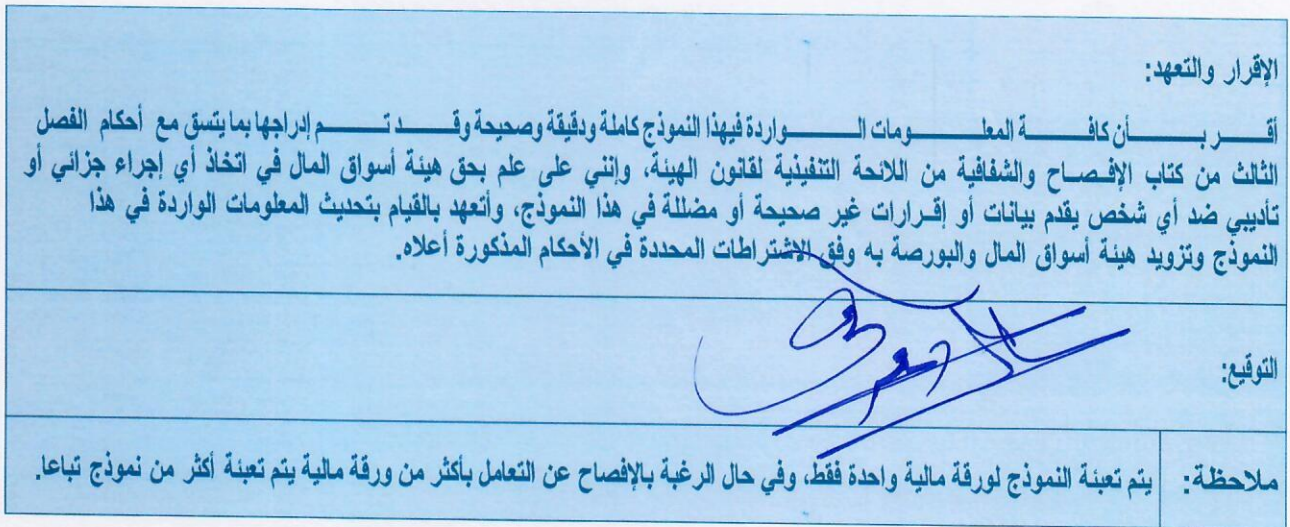 الإقرار والتعهد:
أقـــر بـــــأن كافـــــة المعلـــــومات الـــــواردة فيهذا النموذج كاملة ودقيقة وصحيحة وقـــــد تـــــم إدراجها بما يتسق مع أحكام الفصل
الثالث من كتاب الإفـصـاح والشفافية من اللائحة التنفيذية لقانون الهيئة، وإنني على علم بحق هيئة أسواق المال في اتخاذ أي إجراء جزائي أو
تأديبي ضد أي شخص يقدم بيانات أو إقـرارات غير صحيحة أو مضللة في هذا النموذج، وأتعهد بالقيام بتحديث المعلومات الواردة في هذا
النموذج وتزويد هيئة أسواق المال والبورصة به وفق الاشتراطات المحددة في الأحكام المذكورة أعلاه.
التوقيع:
ملاحظة: يتم تعبئة النموذج لورقة مالية واحدة فقط، وفي حال الرغبة بالإفصاح عن التعامل بأكثر من ورقة مالية يتم تعبئة أكثر من نموذج تباعا.